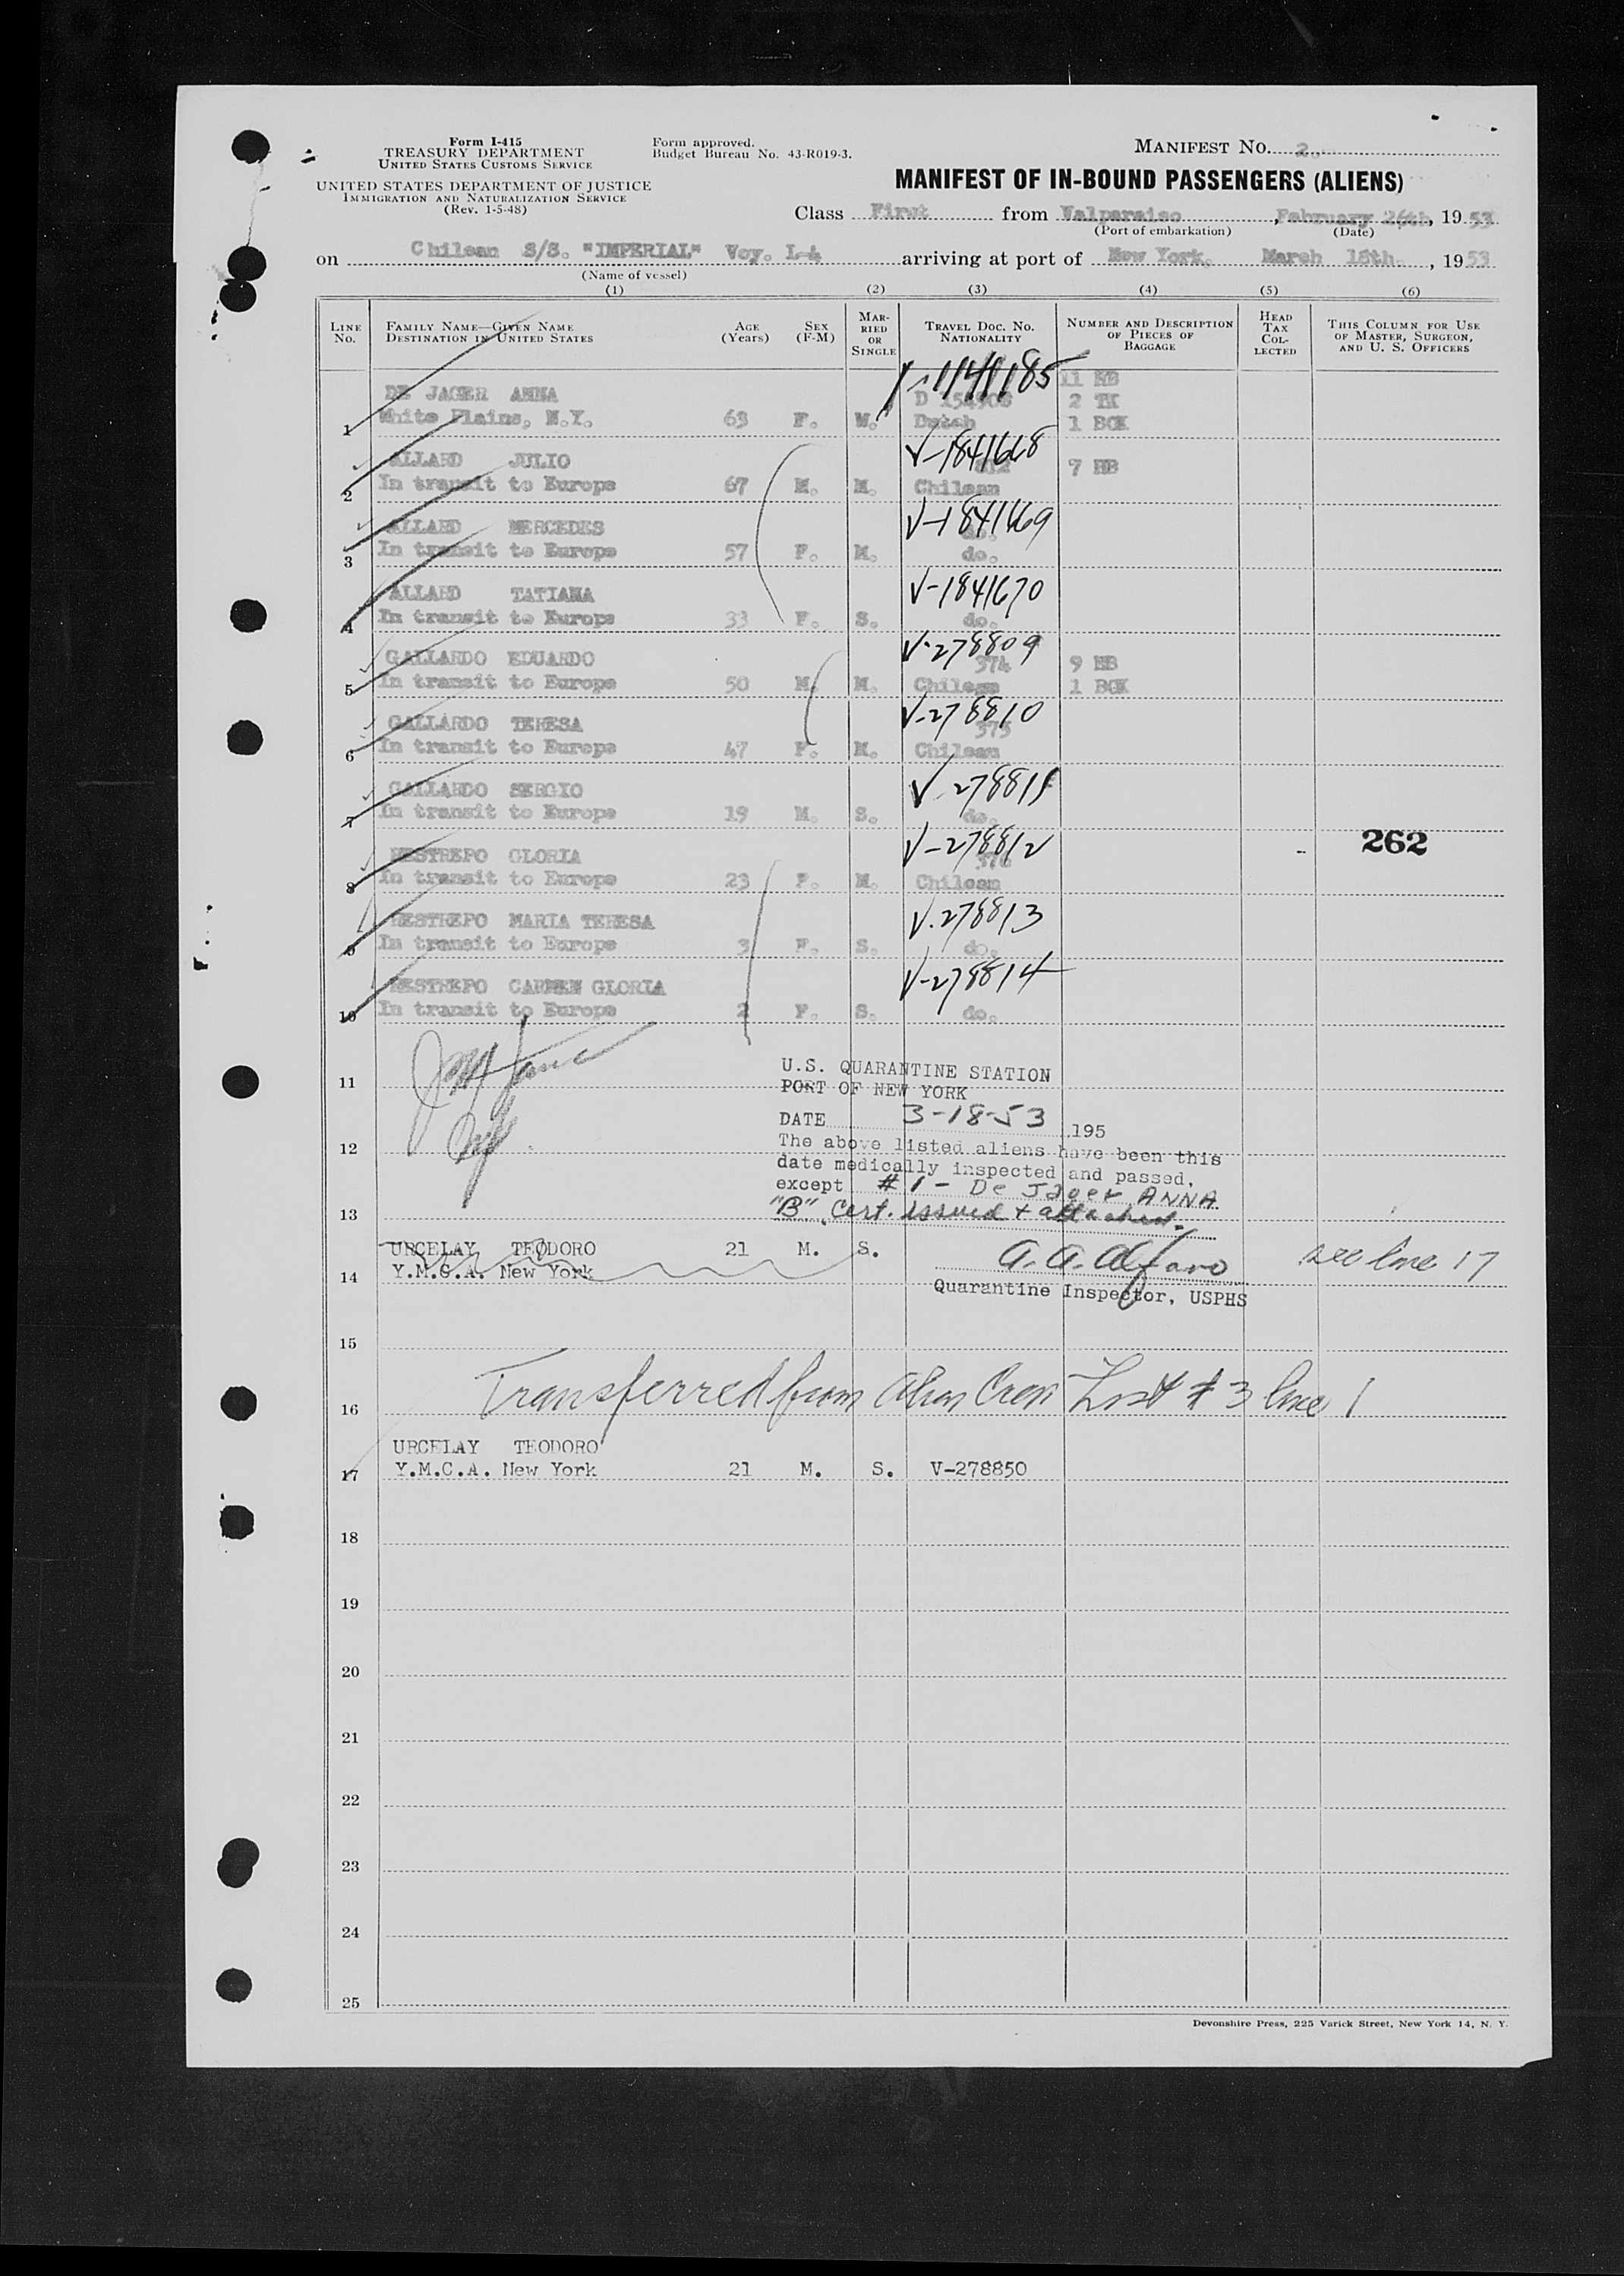 Form I-415
TREASURY DEPARTMENT
UNITED STATES CUSTOMS SERVICE
UNITED STATES DEPARTMENT OF JUSTICE
IMMIGRATION AND NATURALIZATION SERVICE
(Rev. 1-5-48)
Form approved.
Budget Bureau No. 43-R019-3.
MANIFEST NO. 2.
MANIFEST OF IN-BOUND PASSENGERS (ALIENS)
Class First from Valparaiso, February 26th, 1953
(Port of embarkation) (Date)
on Chilean S/S. "IMPERIAL" Voy. L-4 arriving at port of New York, March 18th., 1953
(Name of vessel)
(1) (2) (3) (4) (5) (6)
LINE NO. FAMILY NAME—GIVEN NAME DESTINATION IN UNITED STATES AGE (Years) SEX (F-M) MARRIED OR SINGLE TRAVEL DOC. NO. NATIONALITY NUMBER AND DESCRIPTION OF PIECES OF BAGGAGE HEAD TAX COLLECTED THIS COLUMN FOR USE OF MASTER, SURGEON, AND U. S. OFFICERS
11 HB
DE JAGER ANNA D 154908 2 TK
1 White Plains, N.Y. 63 F. W. Dutch 1 BGK
ALLARD JULIO V-1841668 7 HB
2 In transit to Europe 67 M. M. Chilean
ALLARD MERCEDES V-1841669
3 In transit to Europe 57 F. M. do.
ALLARD TATIANA V-1841670
4 In transit to Europe 33 F. S. do.
GALLARDO EDUARDO V-278809 374 9 HB
5 In transit to Europe 50 M. M. Chilean 1 BGK
GALLARDO TERESA V-278810 375
6 In transit to Europe 47 F. M. Chilean
GALLARDO SERGIO V-278811
7 In transit to Europe 19 M. S. do.
RESTREPO GLORIA V-278812 376 262
8 In transit to Europe 23 F. M. Chilean
RESTREPO MARIA TERESA V-278813
9 In transit to Europe 3 F. S. do.
RESTREPO CARMEN GLORIA V-278814
10 In transit to Europe 2 F. S. do.
U.S. QUARANTINE STATION
11 PORT OF NEW YORK
DATE 3-18-53 195
12 The above listed aliens have been this
date medically inspected and passed,
except #1 - De Jager ANNA
13 "B" Cert. issued + attached.
URCELAY TEODORO 21 M. S. A. A. Alfaro see line 17
14 Y.M.C.A. New York
Quarantine Inspector, USPHS
15
16 Transferred from Alien Crew List # 3 line 1
URCELAY TEODORO
17 Y.M.C.A. New York 21 M. S. V-278850
18
19
20
21
22
23
24
25
Devonshire Press, 225 Varick Street, New York 14, N. Y.